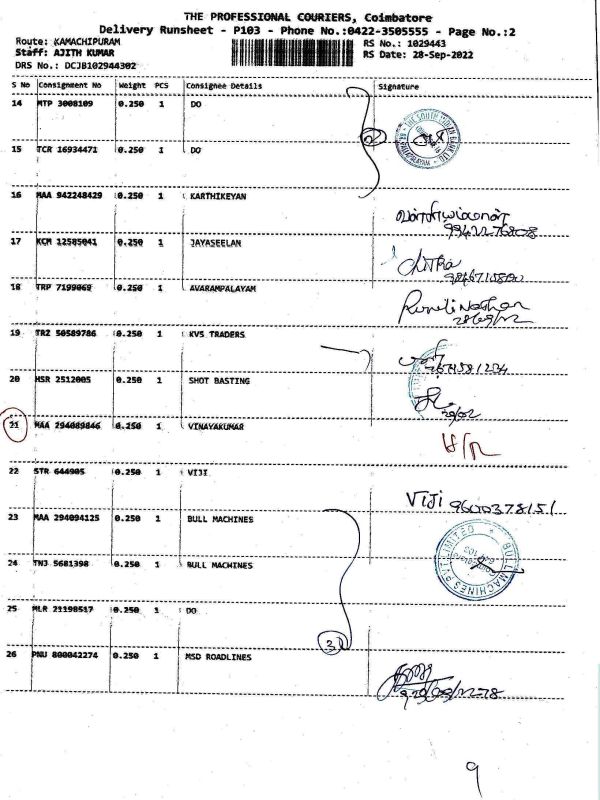 THE PROFESSIONAL COURIERS, Coimbatore
Delivery Runsheet - P103 - Phone No.:0422-3505555 - Page No.:2
Route: KAMACHIPURAM
RS No.: 1029443
Staff: AJITH KUMAR
RS Date: 28-Sep-2022
DRS No.: DCJB102944302
S No Consignment No Weight PCS Consignee Details Signature
14 MTP 3008109 0.250 1 DO
2
15 TCR 16934471 0.250 1 DO
16 MAA 942248429 0.250 1 KARTHIKEYAN
17 KCM 12585041 0.250 1 JAYASEELAN
18 TRP 7199069 0.250 1 AVARAMPALAYAM
19 TRZ 50589786 0.250 1 KVS TRADERS
20 HSR 2512005 0.250 1 SHOT BASTING
21 MAA 294089846 0.250 1 VINAYAKUMAR
22 STR 644905 0.250 1 VIJI
VIJI 9600378151
23 MAA 294094125 0.250 1 BULL MACHINES
BULL MACHINES PVT LIMITED
24 TNJ 5681398 0.250 1 BULL MACHINES
25 MLR 21198517 0.250 1 DO
3
26 PNU 800042274 0.250 1 MSD ROADLINES
9